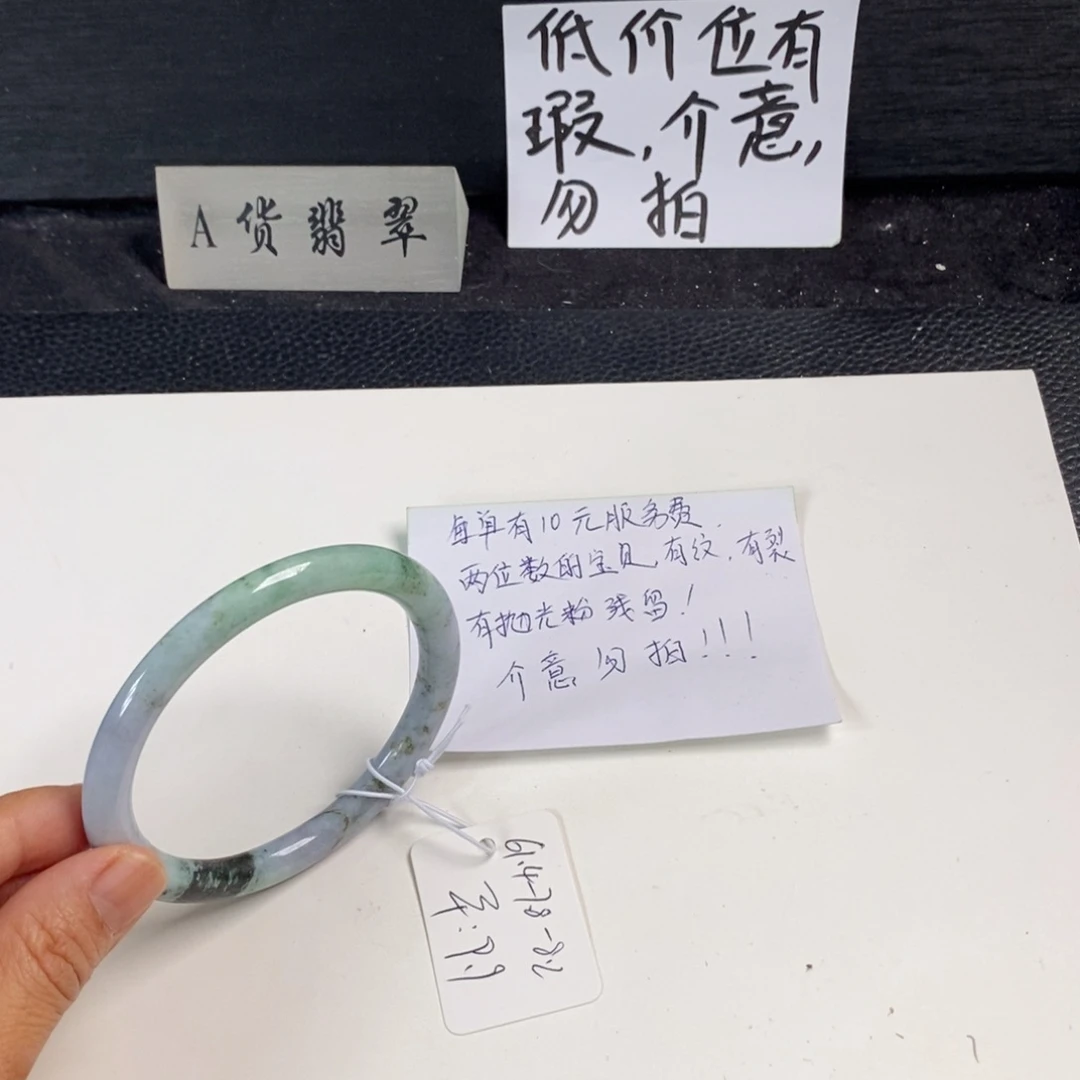 低价位有
瑕,介意,
勿拍
A货翡翠
每单有10元服务费.
两位数的宝贝,有纹,有裂
有抛光粉残留!
介意勿拍!!!
61.4-7.8-8.2